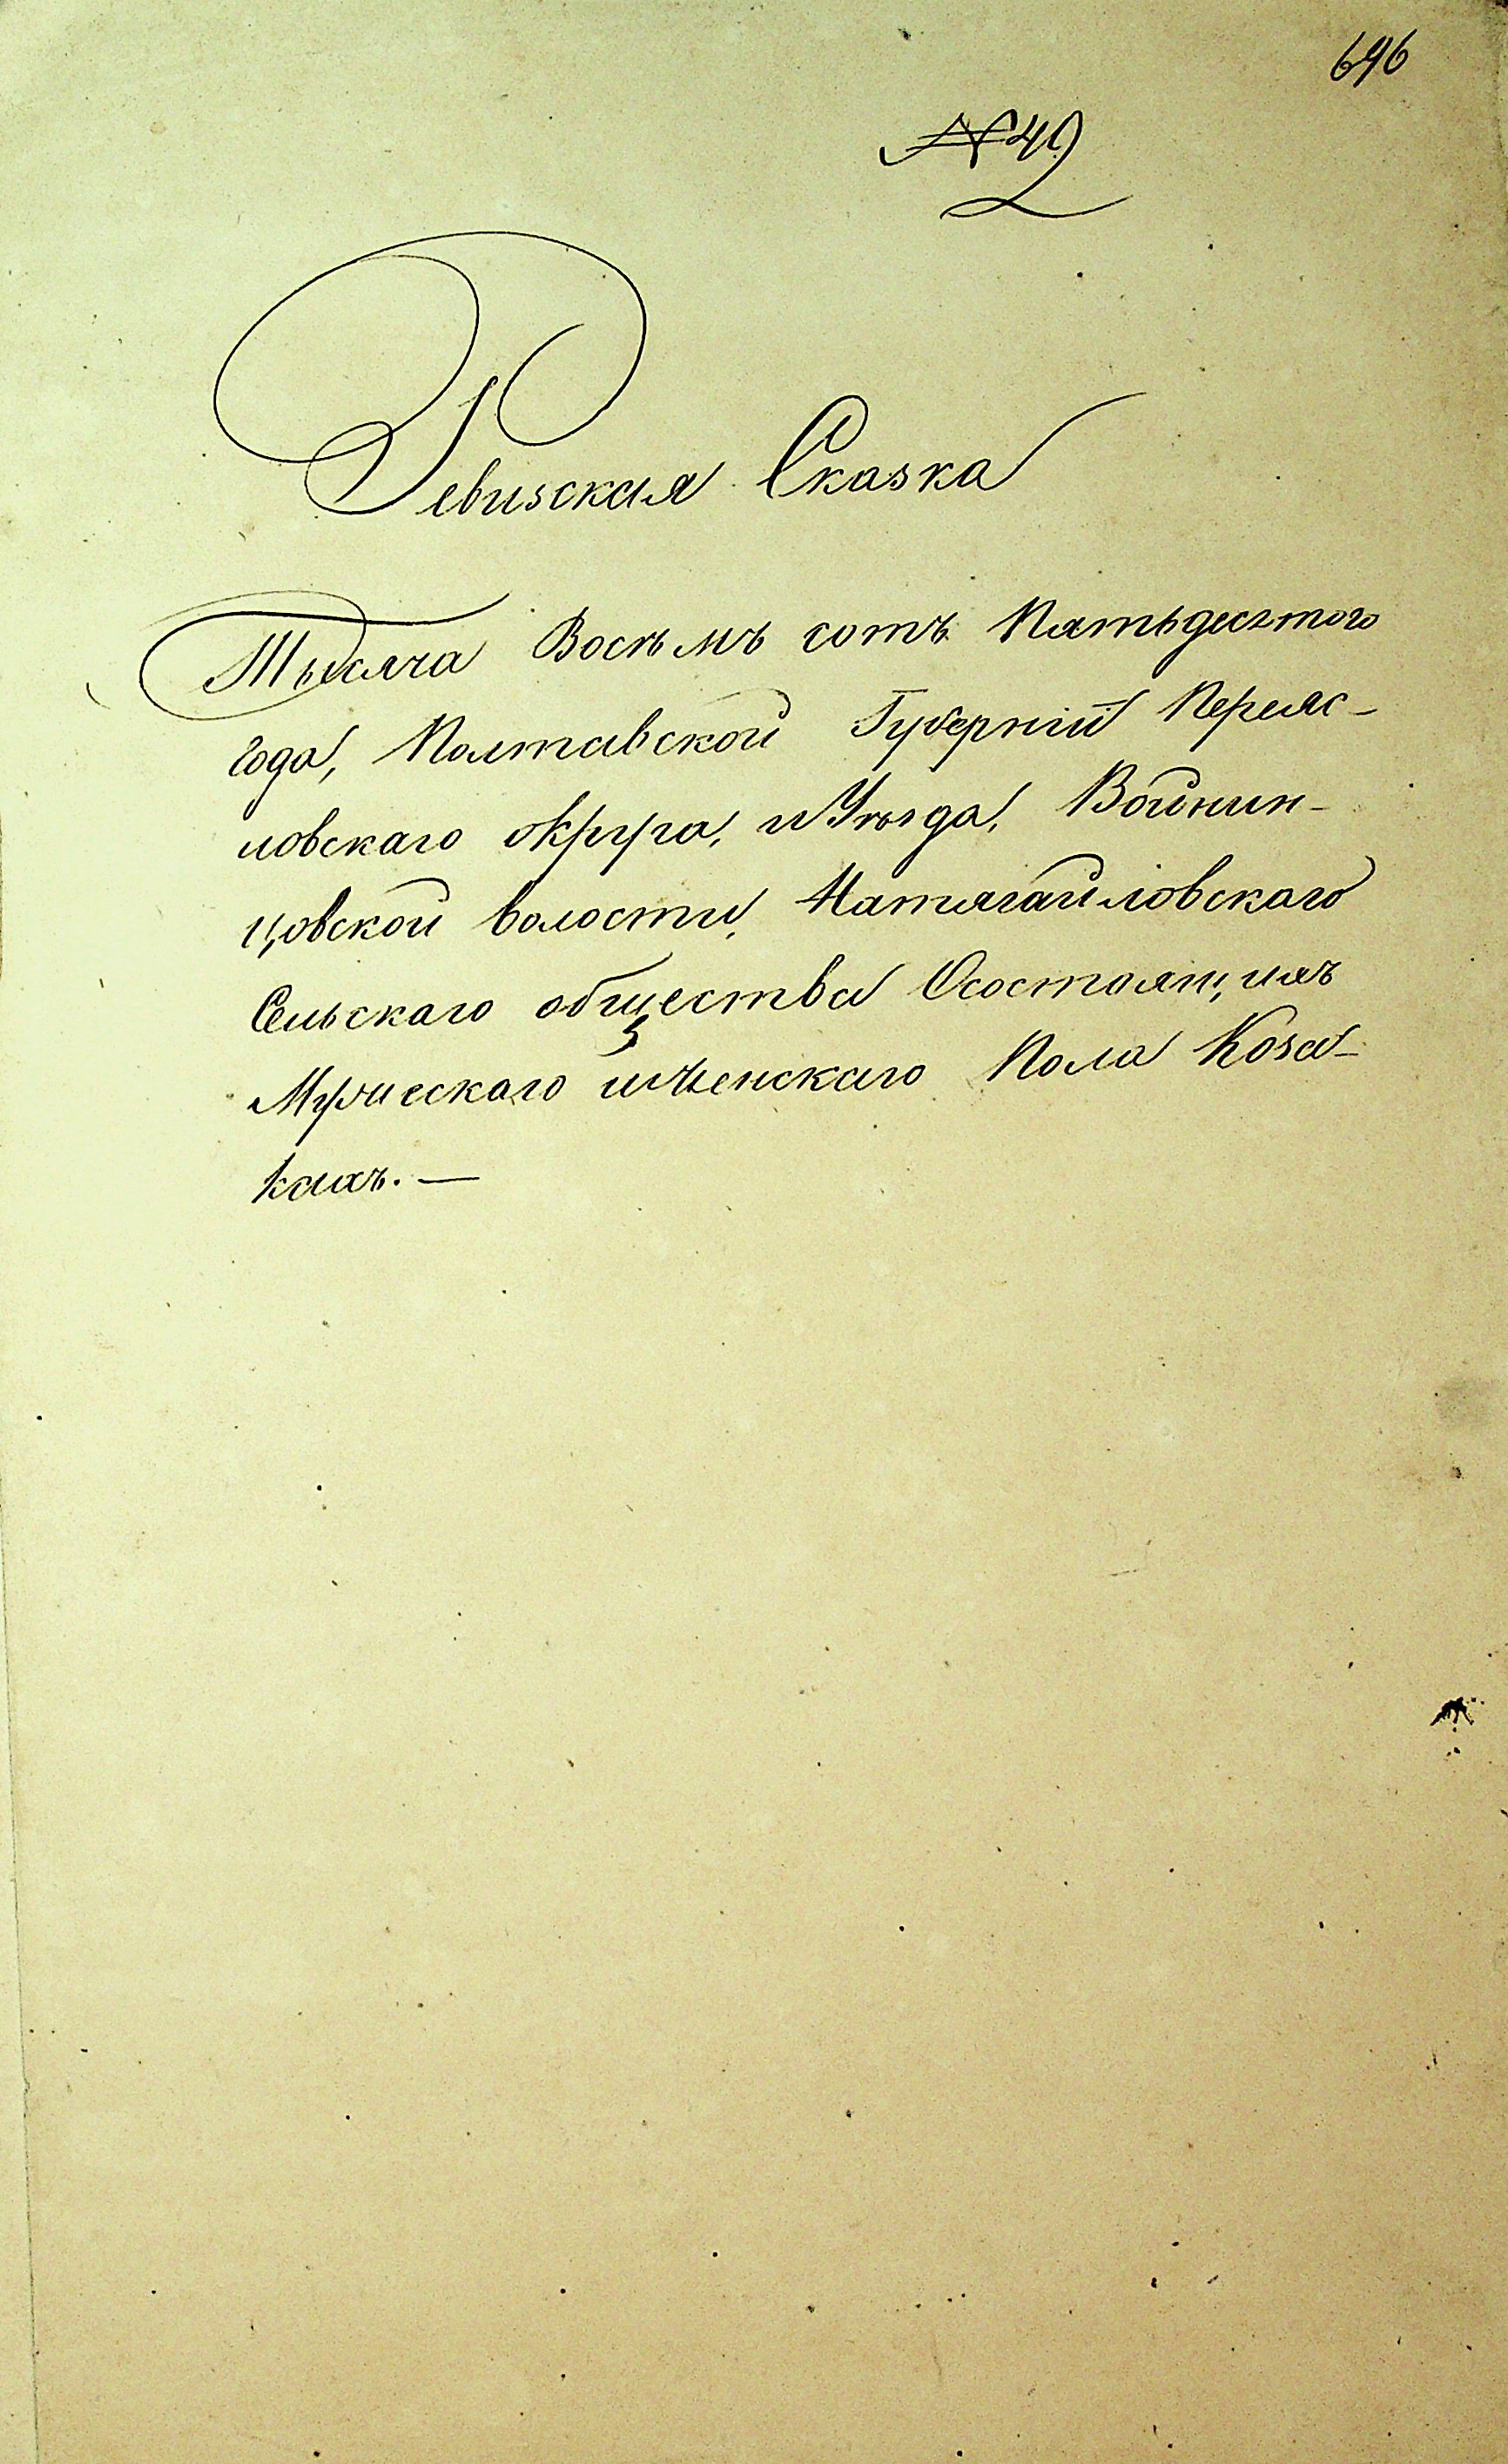 696
№ 49
Ревизская Сказка
Тысяча Восемъ сотъ Пятьдесятого
Года, Полтавской Губерніи Переяс-
ловскаго округа, и Уѣзда, Войнин-
цовской волости, Натягайловскаго
Сельскаго общества Осостоящихъ
Мужескаго иженскаго Пола Коза-
кахъ. —